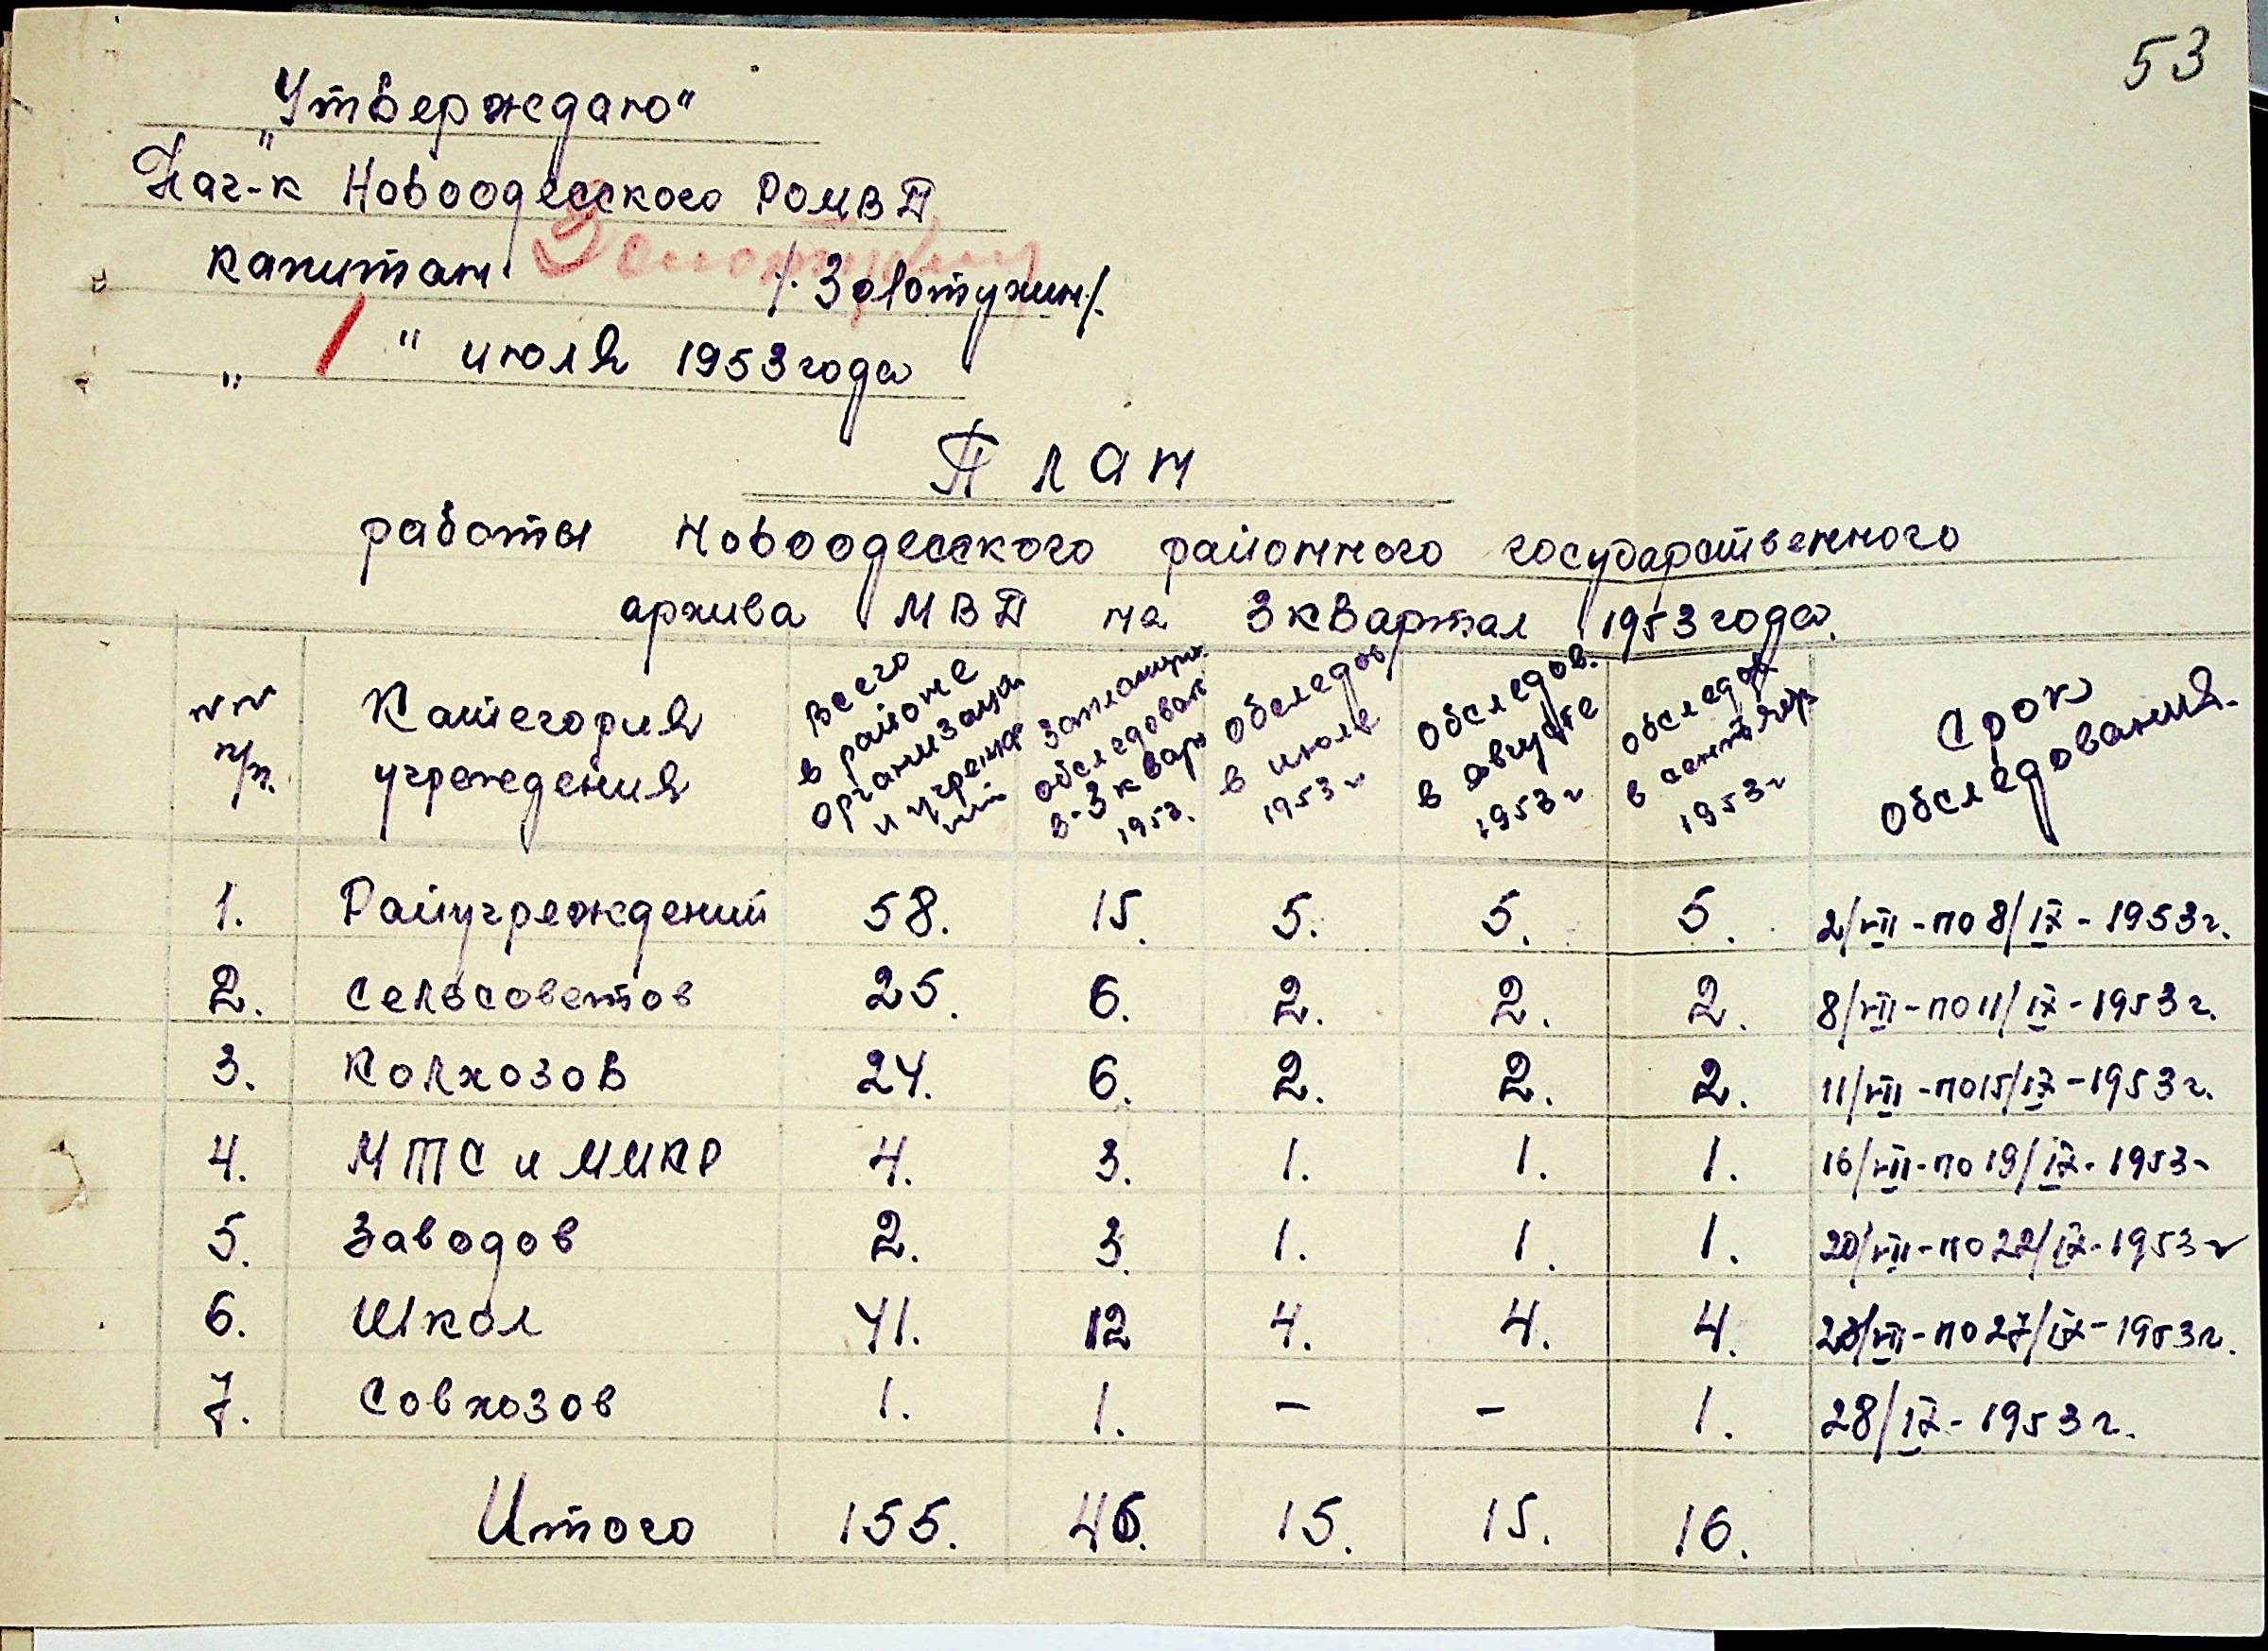 53
"Утверждаю"
Нач-к Новоодесского РОМВД
капитан Золотухин /. Золотухин/.
" 1 " июля 1953 года
План
работы Новоодесского районного государственного
архива МВД на 3 квартал 1953 года.
№№ п/п.
Категория учреждения
Всего в районе организаци и учрежде ний
Запланиров. обследоват в-3 кварт 1953.
Обследов в июле 1953 г
Обследов. в августе 1953 г
обследов в сентябр 1953 г
Срок обследования.
1. Райучреждений 58. 15. 5. 5. 5. 2/VII - по 8/IX - 1953 г.
2. Сельсоветов 25. 6. 2. 2. 2. 8/VII - по 11/IX - 1953 г.
3. Колхозов 24. 6. 2. 2. 2. 11/VII - по 15/IX - 1953 г.
4. МТС и МИКР 4. 3. 1. 1. 1. 16/VII - по 19/IX - 1953 г
5. Заводов 2. 3. 1. 1. 1. 20/VII - по 22/IX - 1953 г
6. Школ 41. 12 4. 4. 4. 23/VII - по 27/IX - 1953 г.
7. Совхозов 1. 1. – – 1. 28/IX - 1953 г.
Итого 155. 46. 15. 15. 16.